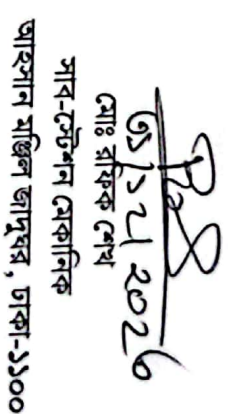 2026
মোঃ রফিক শেখ
সাব-স্টেশন মেকানিক
আহসান মঞ্জিল জাদুঘর, ঢাকা-১১০০